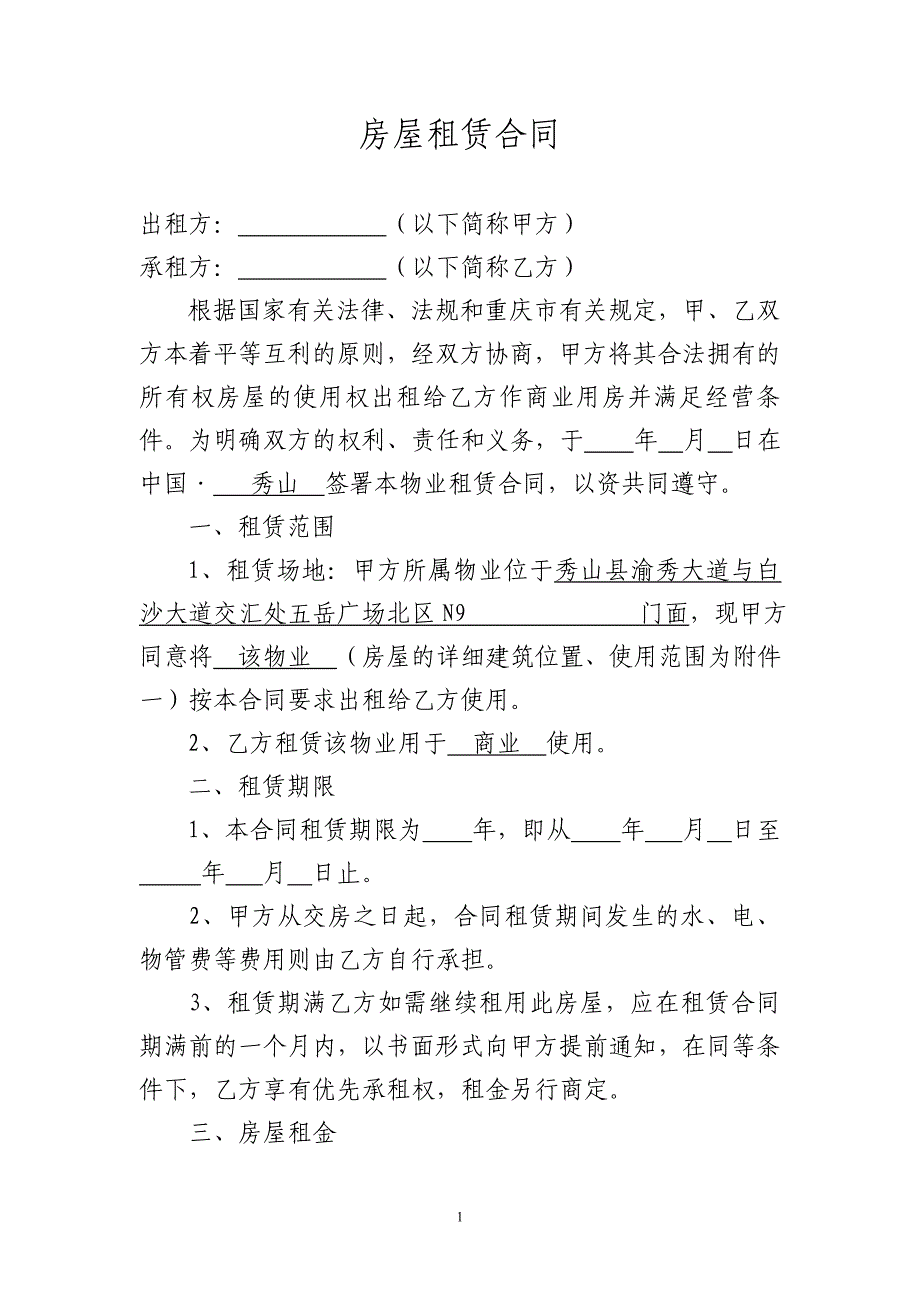 房屋租赁合同
出租方：____________（以下简称甲方）
承租方：____________（以下简称乙方）
根据国家有关法律、法规和重庆市有关规定，甲、乙双
方本着平等互利的原则，经双方协商，甲方将其合法拥有的
所有权房屋的使用权出租给乙方作商业用房并满足经营条
件。为明确双方的权利、责任和义务，于____年__月__日在
中国·___秀山__签署本物业租赁合同，以资共同遵守。
一、租赁范围
1、租赁场地：甲方所属物业位于秀山县渝秀大道与白
沙大道交汇处五岳广场北区N9______________门面，现甲方
同意将__该物业__（房屋的详细建筑位置、使用范围为附件
一）按本合同要求出租给乙方使用。
2、乙方租赁该物业用于__商业__使用。
二、租赁期限
1、本合同租赁期限为____年，即从____年___月__日至
_____年___月__日止。
2、甲方从交房之日起，合同租赁期间发生的水、电、
物管费等费用则由乙方自行承担。
3、租赁期满乙方如需继续租用此房屋，应在租赁合同
期满前的一个月内，以书面形式向甲方提前通知，在同等条
件下，乙方享有优先承租权，租金另行商定。
三、房屋租金
1